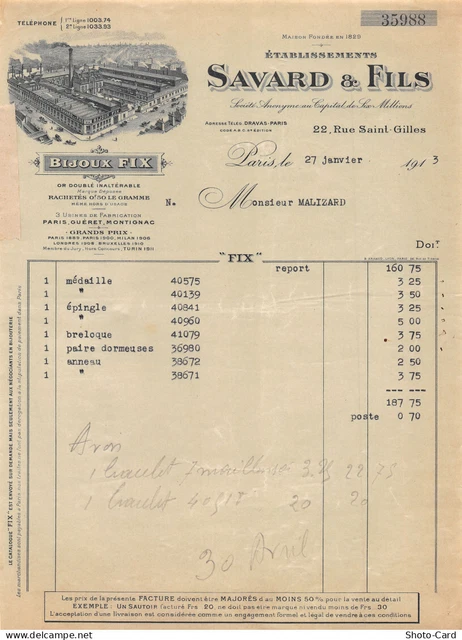 TÉLÉPHONE 1re Ligne 1003.74
2e Ligne 1033.93
35988
MAISON FONDÉE EN 1829
ÉTABLISSEMENTS
SAVARD & FILS
Société Anonyme au Capital de Six Millions
ADRESSE TÉLÉG. DRAVAS-PARIS
CODE A.B.C. 5e ÉDITION
22, Rue Saint-Gilles
Paris, le 27 janvier 1913
BIJOUX FIX
OR DOUBLÉ INALTÉRABLE
Marque Déposée
RACHETÉS 0f50 LE GRAMME
MÊME HORS D'USAGE
3 USINES DE FABRICATION
PARIS, GUÉRET, MONTIGNAC
GRANDS PRIX
PARIS 1889, PARIS 1900, MILAN 1906
LONDRES 1908, BRUXELLES 1910
Membre du Jury, Hors Concours, TURIN 1911
N. Monsieur MALIZARD
Doit
"FIX"
report 160 75
1 médaille 40575 3 25
1 " 40139 3 50
1 épingle 40841 3 25
1 " 40960 5 00
1 breloque 41079 3 75
1 paire dormeuses 36980 2 00
1 anneau 38672 2 50
1 " 38671 3 75
187 75
poste 0 70
1 bracelet
1 bracelet 20 20
30 Avril
LE CATALOGUE "FIX" EST ENVOYÉ SUR DEMANDE MAIS SEULEMENT AUX NÉGOCIANTS EN BIJOUTERIE
Les marchandises sont payables à Paris
Les prix de la présente FACTURE doivent être MAJORÉS d'au MOINS 50% pour la vente au détail
EXEMPLE: UN SAUTOIR facturé Frs 20, ne doit pas être marqué ni vendu moins de Frs .30
L'acceptation d'une livraison est considérée comme un engagement formel et légal de vendre à ces conditions
Photo-Card